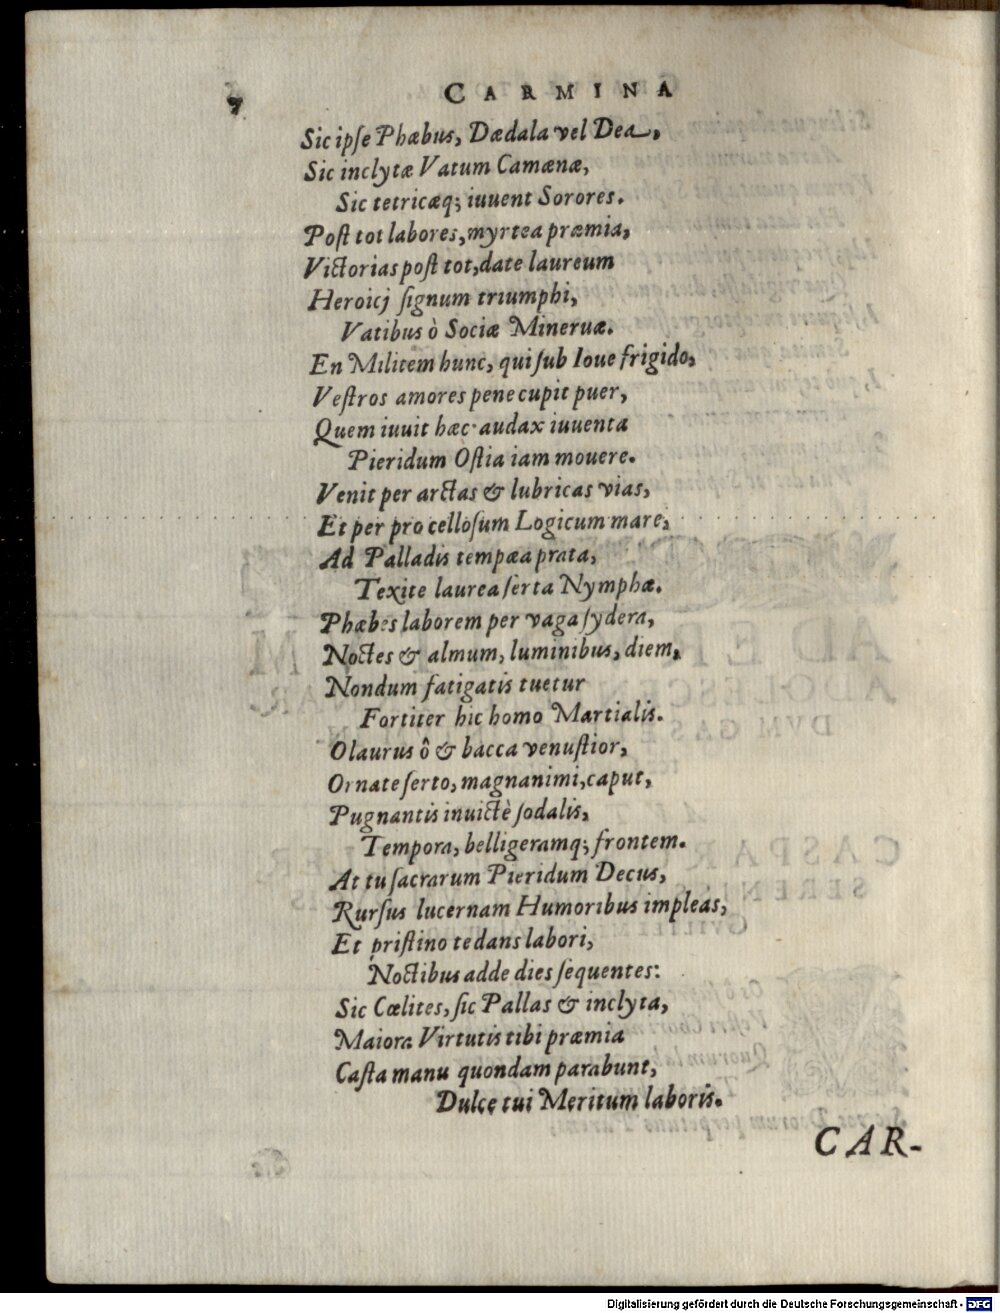 7 CARMINA
Sic ipſe Phæbus, Dædala vel Dea,
Sic inclytæ Vatum Camænæ,
Sic tetricæq; iuuent Sorores.
Poſt tot labores, myrtea præmia,
Victorias poſt tot, date laureum
Heroicj ſignum triumphi,
Vatibus ò Sociæ Mineruæ.
En Militem hunc, qui ſub Ioue frigido,
Veſtros amores pene cupit puer,
Quem iuuit hæc audax iuuenta
Pieridum Oſtia iam mouere.
Venit per arctas & lubricas vias,
Et per procelloſum Logicum mare,
Ad Palladis tempæa prata,
Texite laurea ſerta Nymphæ.
Phæbes laborem per vaga ſydera,
Noctes & almum, luminibus, diem,
Nondum fatigatis tuetur
Fortiter hic homo Martialis.
O laurus ô & bacca venuſtior,
Ornate ſerto, magnanimi, caput,
Pugnantis inuictè ſodalis,
Tempora, belligeramq; frontem.
At tu ſacrarum Pieridum Decus,
Rurſus lucernam Humoribus impleas,
Et priſtino te dans labori,
Noctibus adde dies ſequentes:
Sic Cœlites, ſic Pallas & inclyta,
Maiora Virtutis tibi præmia
Caſta manu quondam parabunt,
Dulce tui Meritum laboris.
CAR-
Digitalisierung gefördert durch die Deutsche Forschungsgemeinschaft - DFG